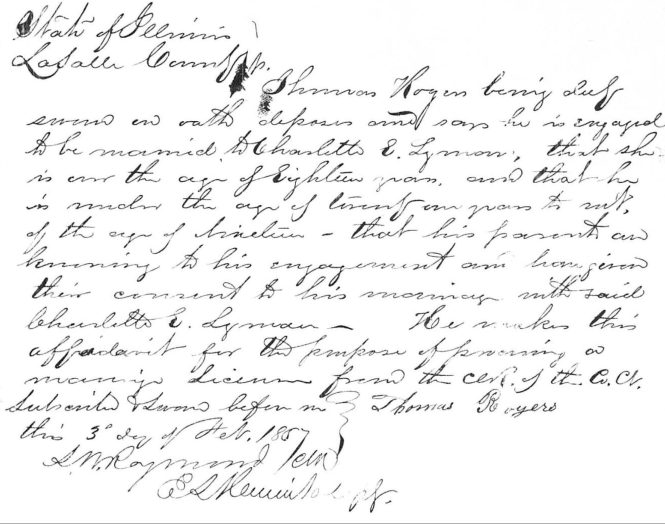 State of Illinois
LaSalle County ss.
Thomas Rogers being duly
sworn on oath deposes and says he is engaged
to be married to Charlotte E. Lyman, that she
is over the age of Eighteen years, and that he
is under the age of twenty one years to wit,
of the age of Nineteen - that his parents are
knowing to his engagement and have given
their consent to his marriage with said
Charlotte E. Lyman — He makes this
affidavit for the purpose of procuring a
marriage License from the clk. of the Co. Ct.
Subscribed & sworn before me Thomas Rogers
this 3d day of Feb. 1857
S. W. Raymond clk